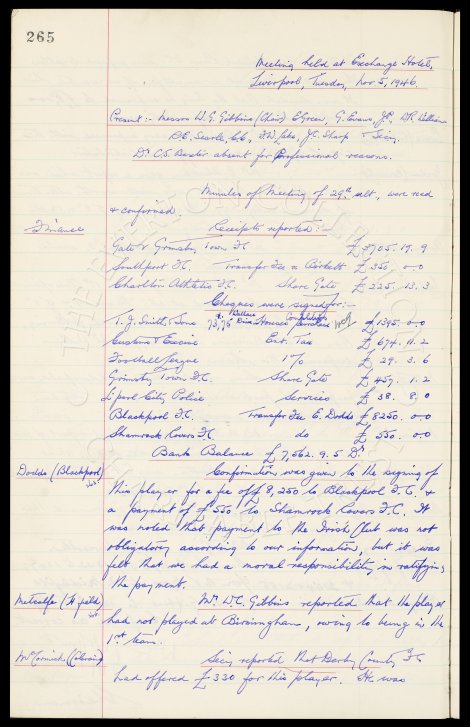 265
Meeting held at Exchange Hotel,
Liverpool, Tuesday, Nov. 5, 1946.
Present:- Messrs W.G. Gibbins (Chair) E Green, G. Evans, J.P., W.R. Williams
R.E. Searle, F.W. Lake, J.C. Sharp & Secy.
Dr C.S. Baxter absent for Professional reasons.
Minutes of Meeting of 29th ult., were read
& confirmed.
Finance
Receipts reported:-
Gate v Grimsby Town FC £3705.17.9
Southport F.C. Transfer Fee a Birkett £350.0.0
Charlton Athletic F.C. Share Gate £225.13.3
Cheques were signed for:-
T.J. Smith & Sons 73,75 Drive Houses purchase £1395.0.0
Completion
Customs & Excise Ent. Tax £674.11.2
Football League 1% £29.3.6
Grimsby Town F.C. Share Gate £457.1.2
L'pool City Police Services £38.8.0
Blackpool F.C. Transfer Fee E. Dodds £8250.0.0
Shamrock Rovers F.C. do £550.0.0
Bank Balance £7,562.9.5 Dr
Dodds (Blackpool)
Confirmation was given to the signing of
this player for a fee of £8,250 to Blackpool F.C. &
a payment of £550 to Shamrock Rovers F.C. It
was noted that payment to the Irish Club was not
obligatory according to our information, but it was
felt that we had a moral responsibility in ratifying
the payment.
Metcalfe
Mr. W.C. Gibbins reported that the player
had not played at Birmingham, owing to being in the
1st team.
McCormick
Secy reported that Derby County FC
had offered £330 for this player. He was